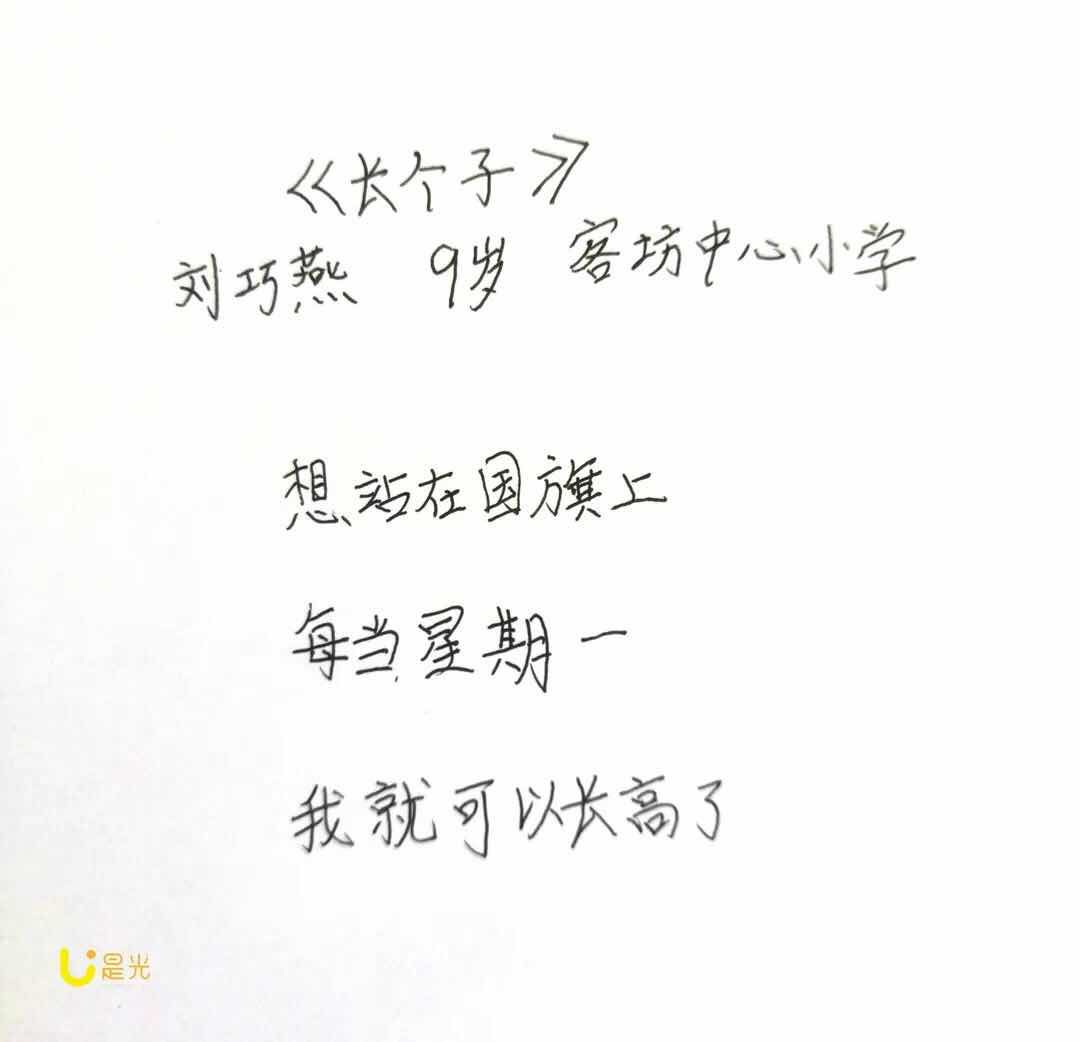 《长个子》
刘巧燕 9岁 客坊中心小学
想站在国旗上
每当星期一
我就可以长高了
是光